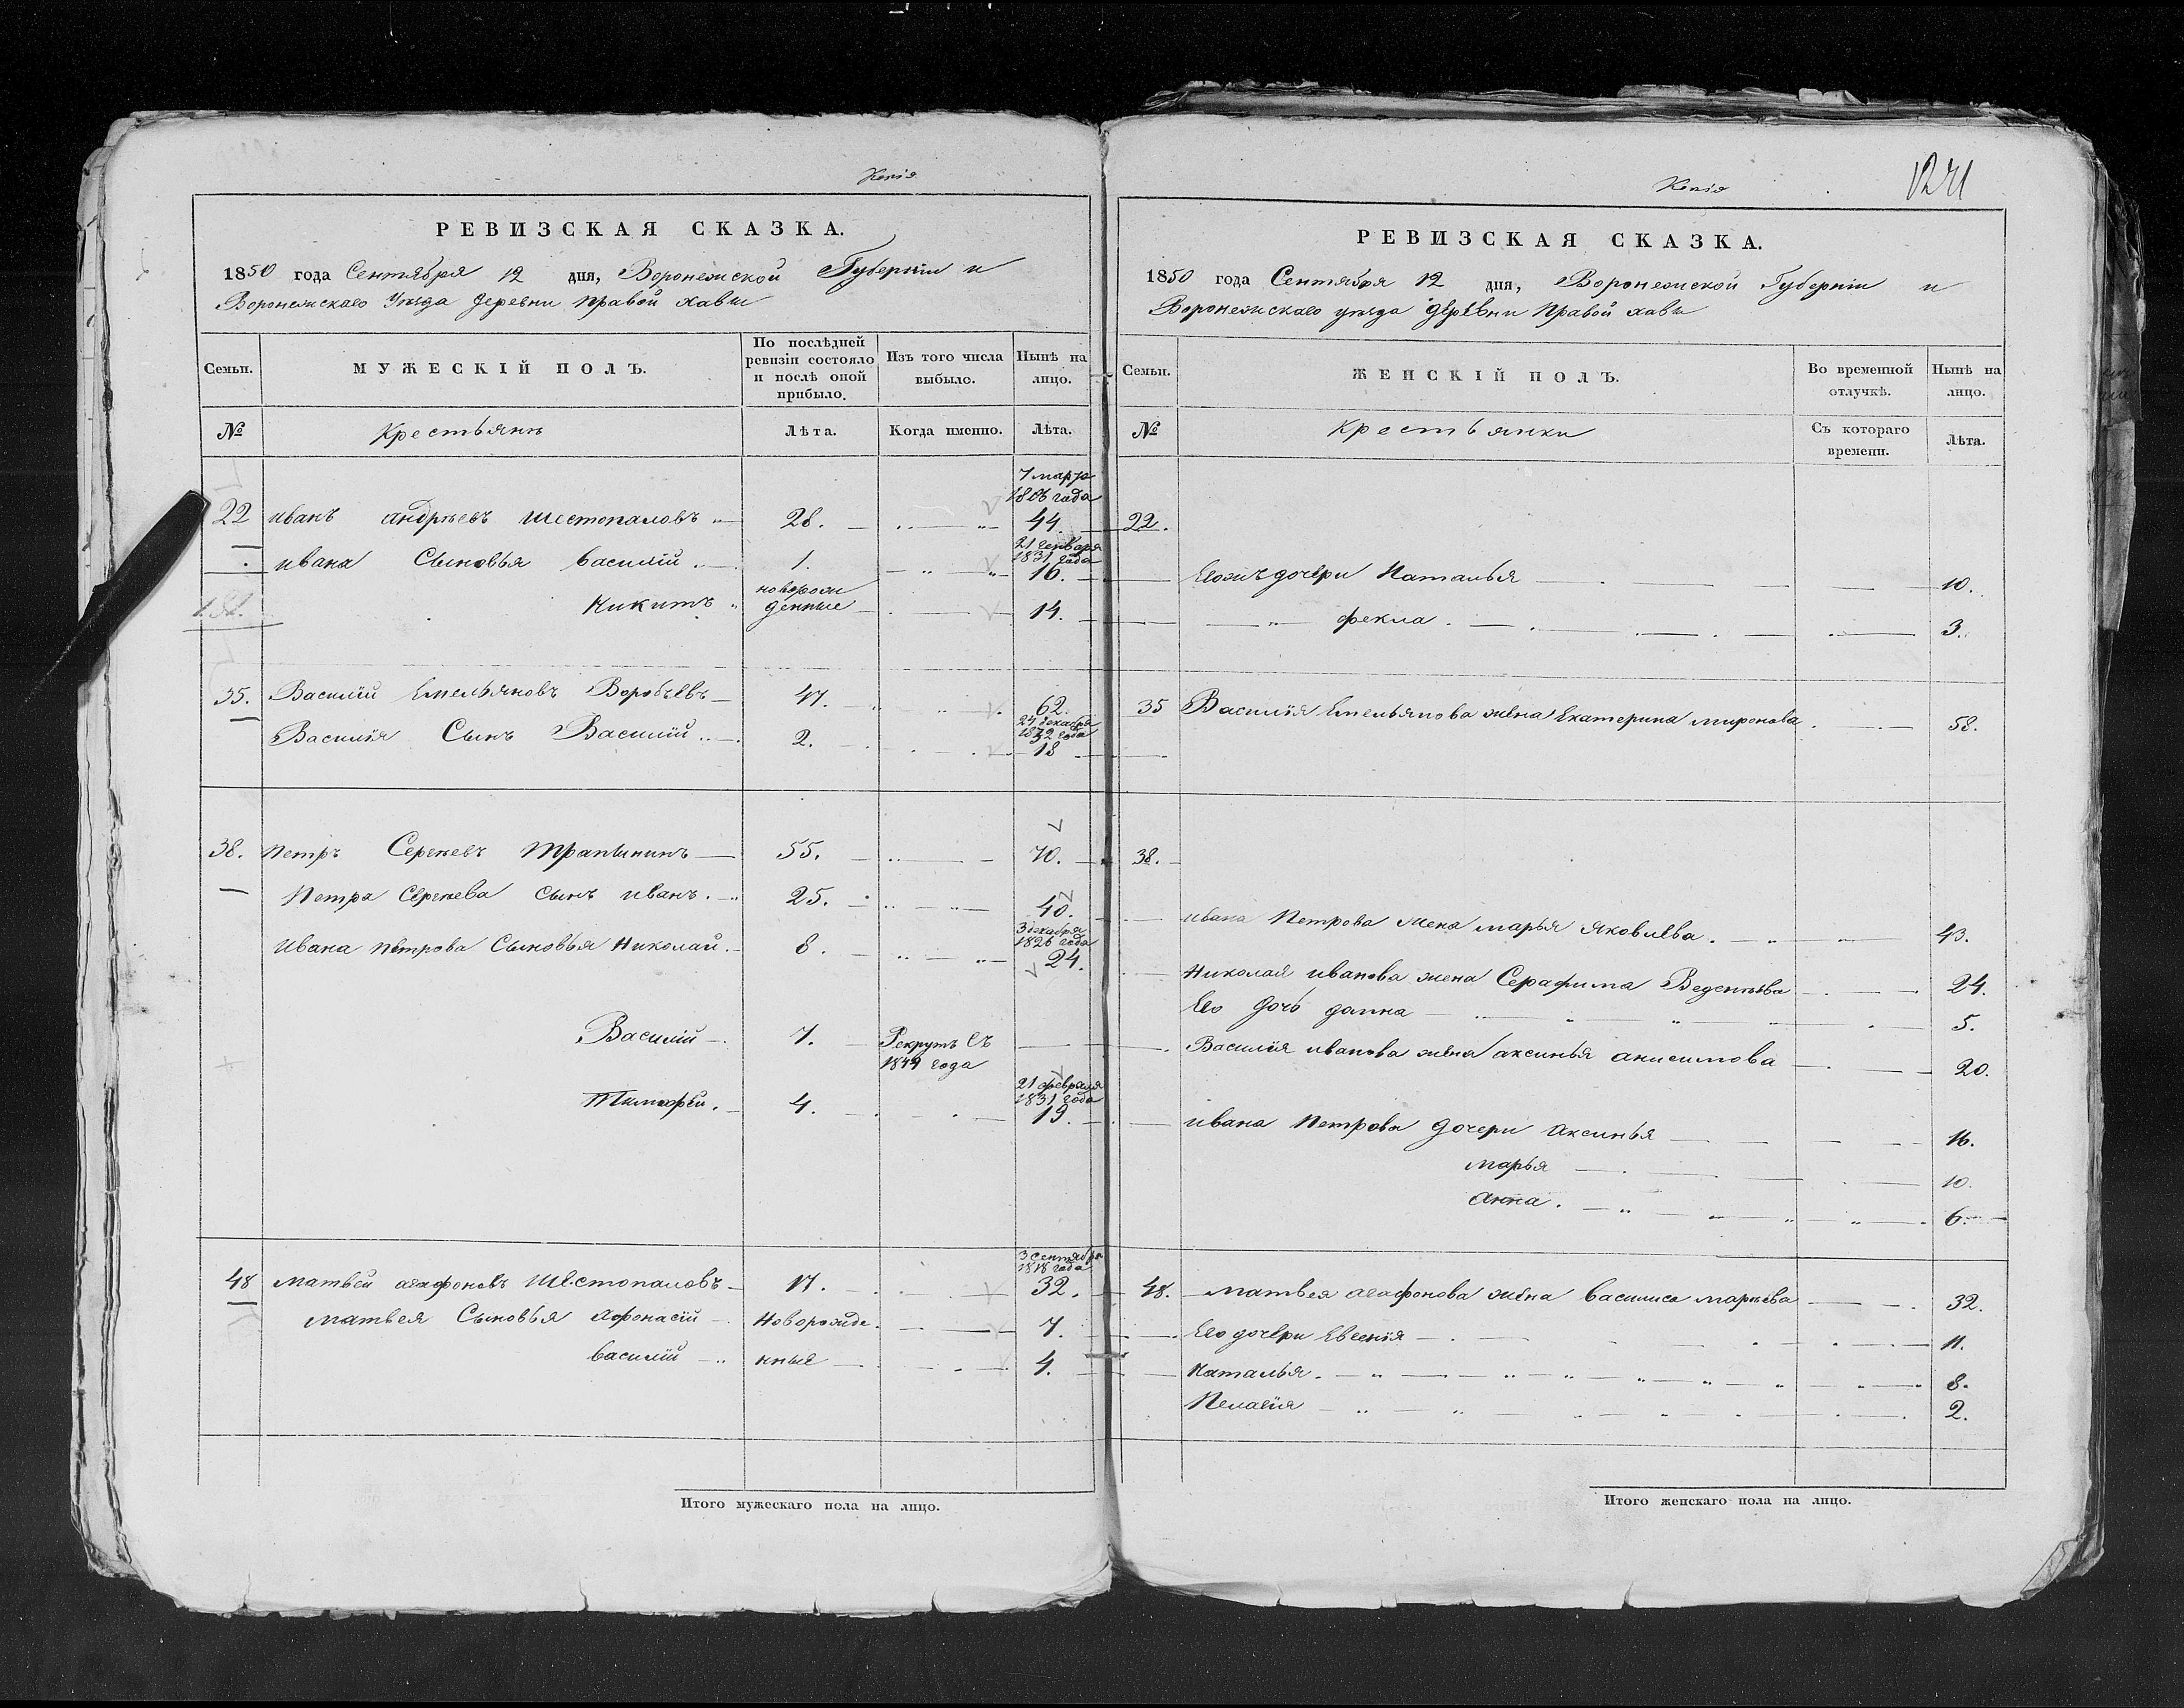 Копія
РЕВИЗСКАЯ СКАЗКА.
1850 года Сентября 12 дня, Воронежской Губерніи и
Воронежскаго Уѣзда деревни правой хавы
Семьи. МУЖЕСКІЙ ПОЛЪ. По послѣдней ревизіи состояло и послѣ оной прибыло. Изъ того числа выбыло. Нынѣ на лицо.
№ Крестьянѣ Лѣта. Когда именно. Лѣта.
7 марта
1806 года
22 иванъ андрѣевъ шестопаловъ 28. 44
21 генваря
1831 года
ивана Сыновья василій 1. 16.
новорож
Никитъ денные 14.
35. Василій Емельяновъ Воробьевъ 47. 62.
24 декабря
1832 года
Василія Сынъ Василій 2. 18
38. Петръ Сергѣевъ Трапынинъ 55. 70.
Петра Сергѣева сынъ иванъ. 25. 40.
3 декабря
1826 года
Ивана петрова Сыновья Николай. 8. 24.
Василій 7. Рекрутъ съ
1849 года
21 февраля
1831 года
Тимофѣй. 4. 19.
3 Сентября
1818 года
48 матвѣй агафоновъ Шестопаловъ 17. 32.
матвея Сыновья Афонасій Новорожде 7.
василій нные 4.
Итого мужескаго пола на лицо.
Копія
1241
РЕВИЗСКАЯ СКАЗКА.
1850 года Сентября 12 дня, Воронежской Губерніи и
Воронежскаго уѣзда деревни правой хавы
Семьи. ЖЕНСКІЙ ПОЛЪ. Во временной отлучкѣ. Нынѣ на лицо.
№ крестьянки Съ котораго времени. Лѣта.
22.
Егожъ дочери Наталья 10.
фекла. 3.
35 Василія Емельянова жена Екатерина миронова 58.
38.
ивана Петрова жена марья яковлева. 43.
Николая иванова жена Серафима Веденѣева 24.
Его дочь домна 5.
Василія иванова жена аксинья анисимова 20.
ивана Петрова дочери аксинья 16.
марья 10.
анна. 6.
48. матвея агафонова жена василиса маркѣева 32.
Его дочери Евгенія 11.
Наталья. 8.
Пелагія 2.
Итого женскаго пола на лицо.